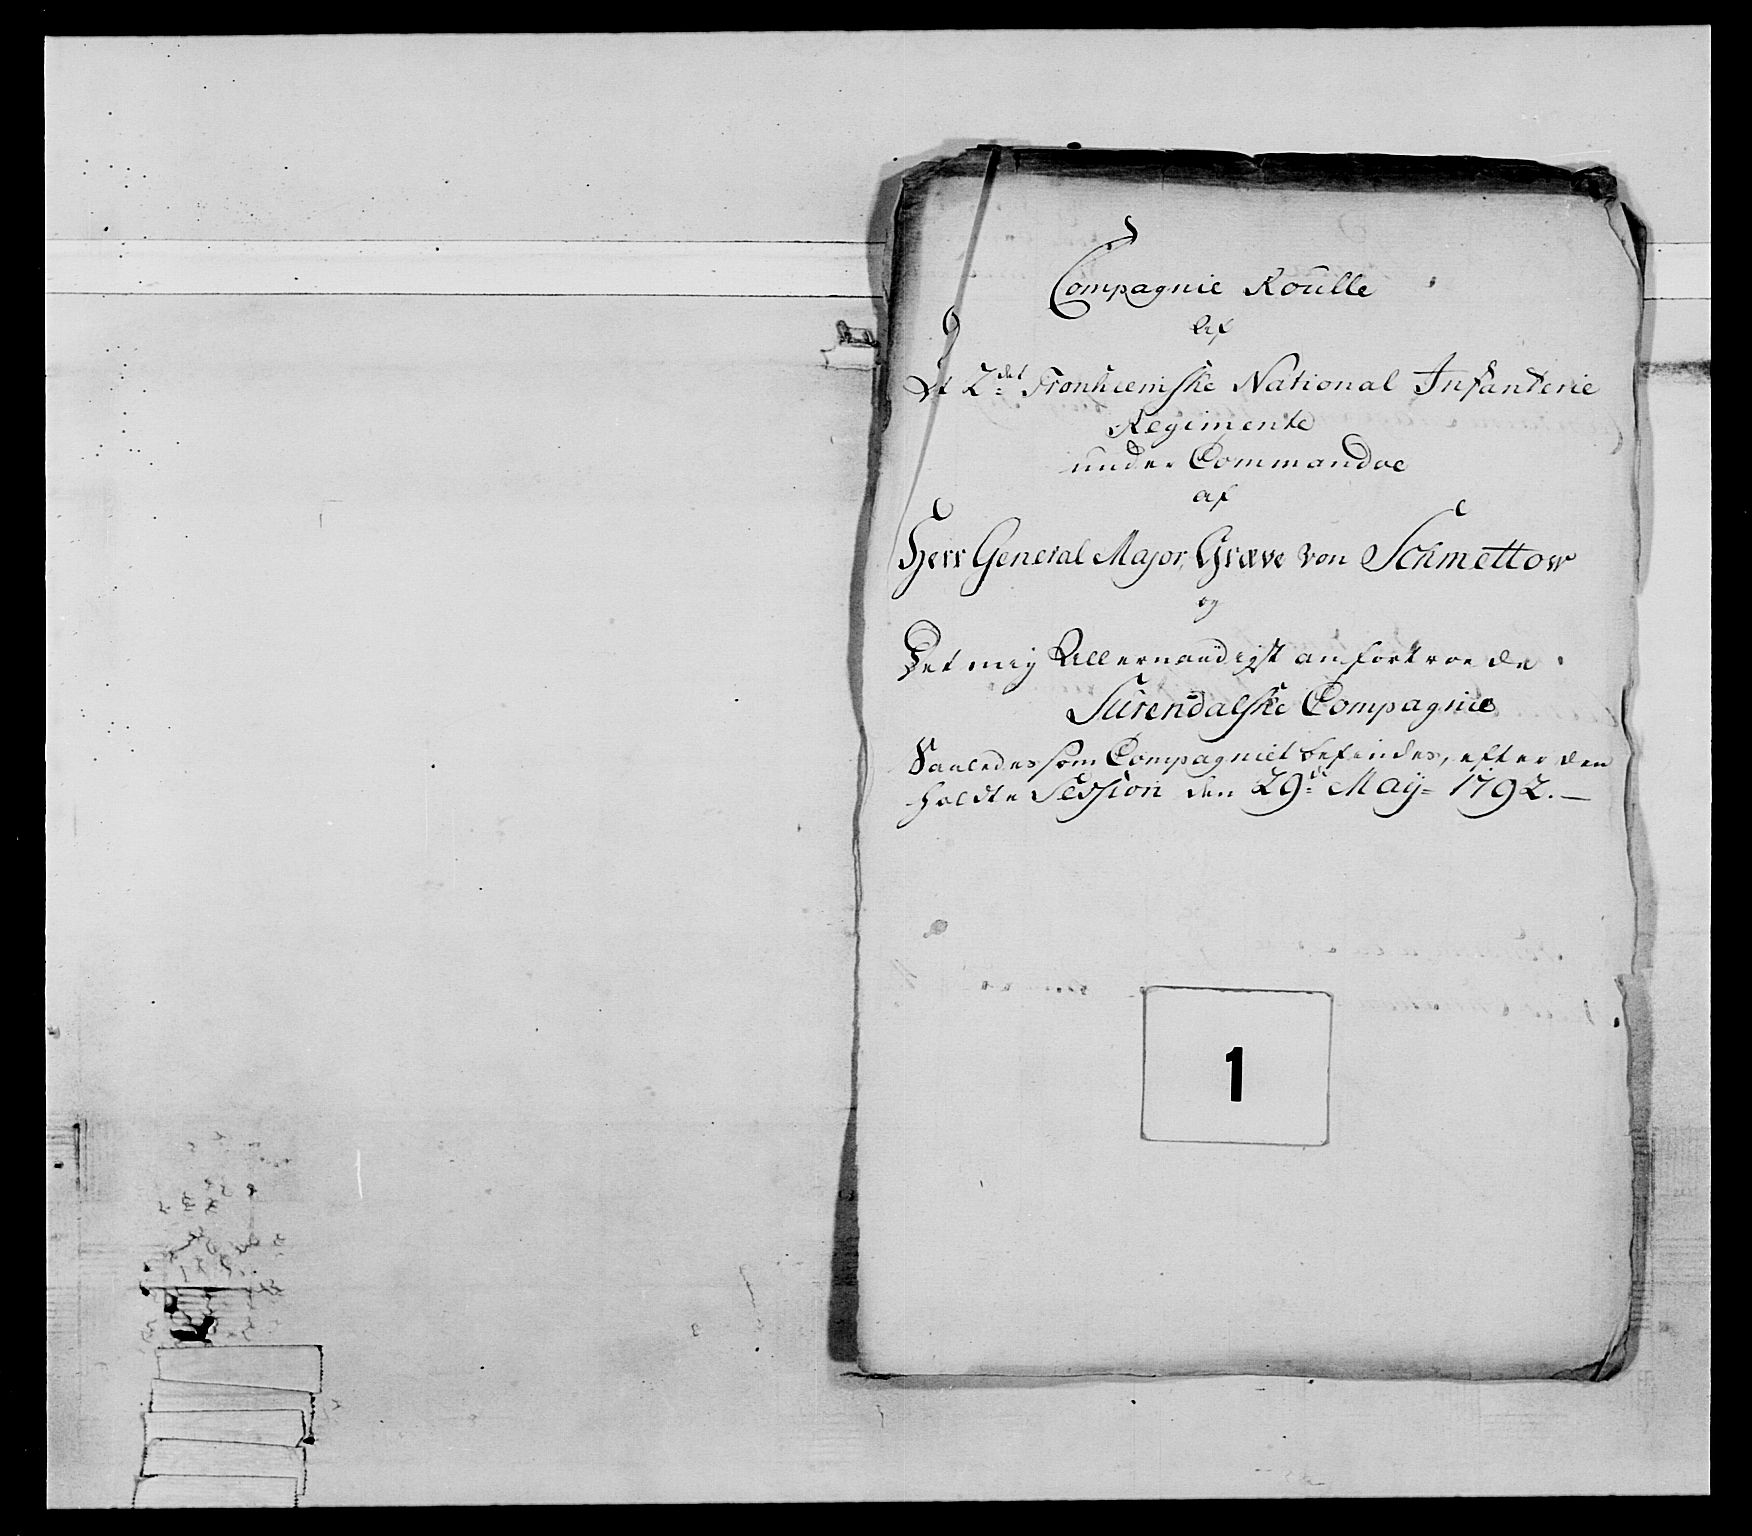 Compagnie Roulle
Af
Det 2det Tronhiemske National Infanterie
Regimente
under Commandoe
af
Herr General Major, Græve von Schmettow
og
Det mig Allernaadigst anfortroede
Surendalske Compagnie
Saaledes som Compagniet befindes, efter den
holdte Session den 29de May= 1792.—
1